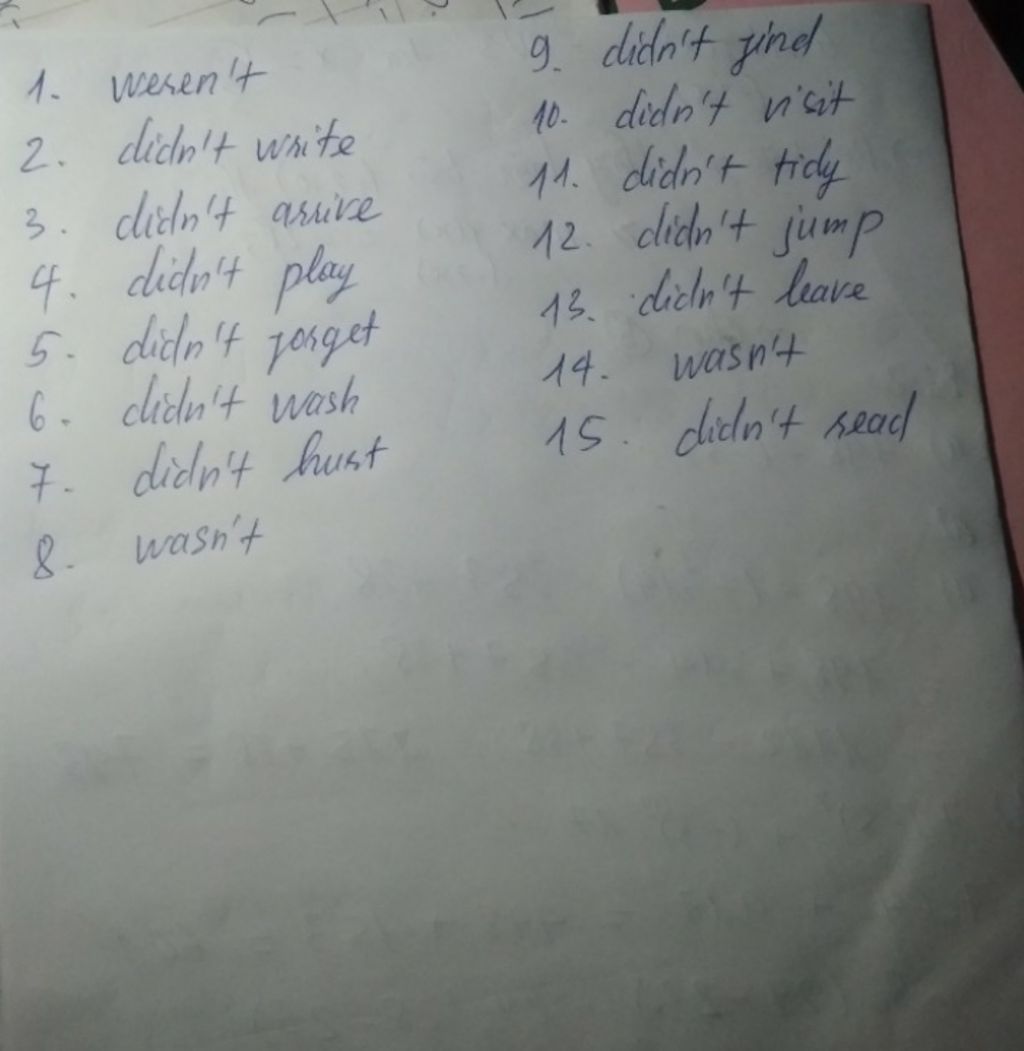 1. weren't
2. didn't write
3. didn't arrive
4. didn't play
5. didn't forget
6. didn't wash
7. didn't hurt
8. wasn't
9. didn't find
10. didn't visit
11. didn't tidy
12. didn't jump
13. didn't leave
14. wasn't
15. didn't read